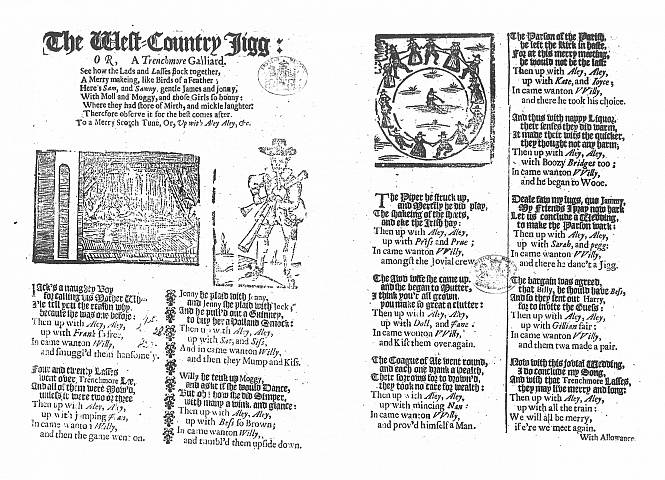 The West-Country Jigg:
OR, A Trenchmore Galliard.
See how the Lads and Lasses flock together,
A Merry makeing, like Birds of a Feather;
Here's Sam, and Sawny, gentle James and Jonny,
With Moll and Moggy, and those Girls so bonny:
Where they had store of Mirth, and mickle laughter:
Therefore observe it for the best comes after.
To a Merry Scotch Tune, Or, Up wi't Aley Aley, &c.
Jack's a naughty Boy
for calling his Mother
I'le tell you the reason why,
because she was one before:
Then up with Aley, Aley,
up with Frank
In came wanton Willy,
and smugg'd them hansomely.
Four and twenty Lasses
went over Trenchmore Lee,
And all of them were Mow'd,
unless it were two or three
Then up with Aley, Aley,
up with jumping
In came wanton Willy,
and then the game went on.
Jenny he plaid with
and Jenny she plaid with Jack,
And he pull'd out a
to buy her a Holland Smock:
Then up with Aley, Aley,
up with Sue, and Siss,
And in came wanton Willy.
and then they Mump and Kiss.
Willy he took up Moggy,
and askt if she would Dance,
But oh! how she did Simper,
with many a wink and glance:
Then up with Aley, Aley,
up with Bess so Brown;
In came wanton Willy,
and tumbl'd them upside down.
The Piper he struck up,
and Merrily he did play,
The shakeing of the sheets,
and eke the Irish hay:
Then up with Aley, Aley,
up with Priss and Prue;
In came wanton VVilly
amongst the Jovial crew.
The Awd wife she came up,
and she began to Mutter,
I think you're all grown,
you make so great a clutter:
Then up with Aley, Aley,
up with Doll, and Jane:
In came wonton VVilly,
and Kist them over again.
The Coague of Ale went round,
and each one drank a health,
Their sorrows for to drown'd,
they took no care for wealth:
Then up with Aley, Aley,
up with mincing Nan:
In came wanton VVilly,
and prov'd himself a Man.
The Parson of the Parish,
he left the Kirk in haste,
For at this merry meeting,
he would not be the last:
Then up with Aley, Aley,
up with Kate, and Joyce;
In came wanton VVilly,
and there he took his choice.
And thus with nappy Liquor,
their senses they did warm,
It made their wits the quicker,
they thought not any harm;
Then up with Aley, Aley,
with Boozy Bridget too;
In came wanton VVilly,
and he began to Wooe.
Deale saw my lugs, quo Jammy,
My Friends I pray now hark
Let us conclude a Wedding,
to make the Parson wark:
Then up with Aley, Aley,
up with Sarah, and pegg:
In came wanton VVilly,
and there he danc't a Jigg.
The bargain was agreed,
that Billy, he should have Bess,
And so they sent out Harry,
for to invite the Guess:
Then up with Aley, Aley,
up with Gillian fair:
In came wonton VVilly,
and them twa made a pair.
Now with this Jovial Wedding,
I do conclude my Song,
And wish that Trenchmore Lasses,
they may live merry and long:
Then up with Aley, Aley,
up with all the train:
We will all be merry,
if e're we meet again.
With Allowance.